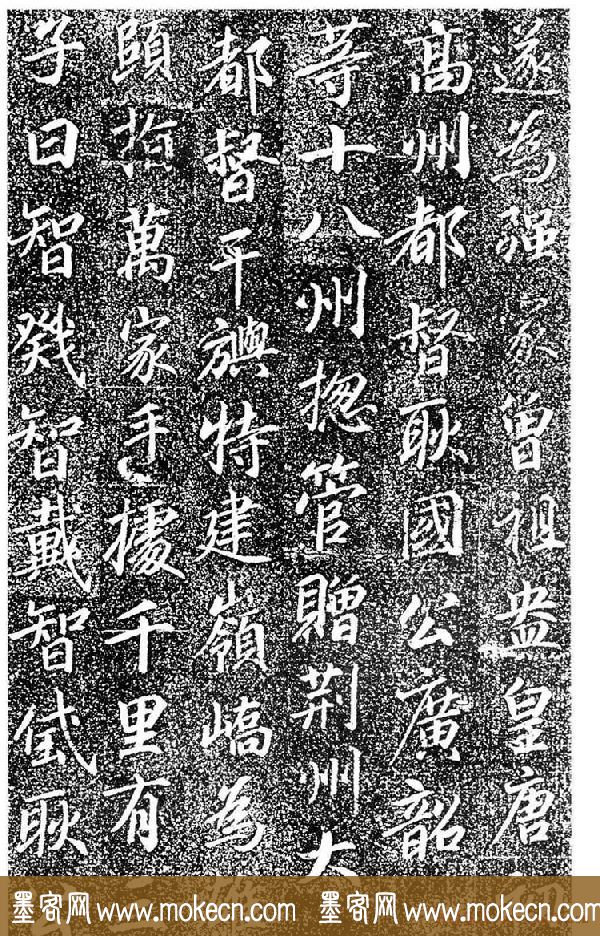 遂為强家曾祖盎皇唐
高州都督耿國公廣韶
等十八州揔管贈荊州大
都督平旟特建嶺嶠為
頤指萬家手據千里有
子曰智戣智戴智耿
墨客网 www.mokecn.com 墨客网 www.mokecn.com